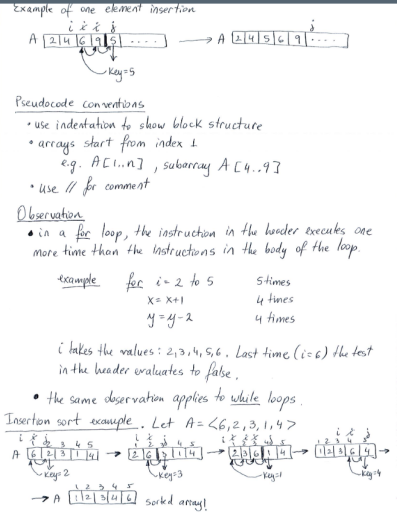 Example of one element insertion
i i i j
A 2 4 6 9 5 .... → A 2 4 5 6 9 ....
j
key=5
Pseudocode conventions
• use indentation to show block structure
• arrays start from index 1
e.g. A[1..n], subarray A[4..9]
• use // for comment
Observation
• in a for loop, the instruction in the header executes one
more time than the instructions in the body of the loop.
example for i = 2 to 5 5 times
x = x+1 4 times
y = y-2 4 times
i takes the values: 2,3,4,5,6. Last time (i=6) the test
in the header evaluates to false.
• the same observation applies to while loops.
Insertion sort example. Let A = <6,2,3,1,4>
1 2 3 4 5
A 6 2 3 1 4 → 2 6 3 1 4 → 2 3 6 1 4 → 1 2 3 6 4 →
key=2 key=3 key=1 key=4
1 2 3 4 5
→ A 1 2 3 4 6 sorted array!